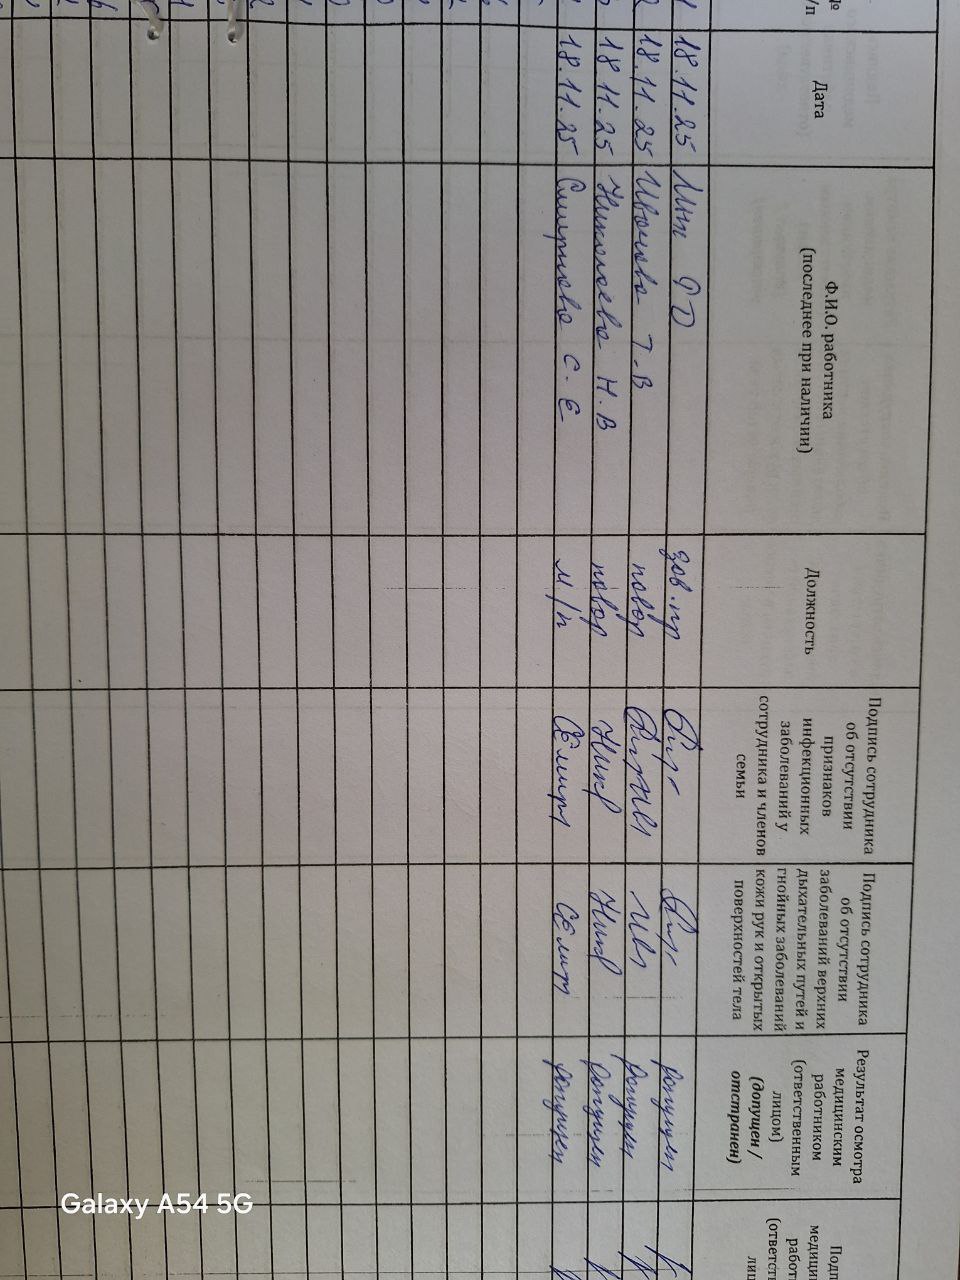 №
/п
Дата
Ф.И.О. работника
(последнее при наличии)
Должность
Подпись сотрудника
об отсутствии
признаков
инфекционных
заболеваний у
сотрудника и членов
семьи
Подпись сотрудника
об отсутствии
заболеваний верхних
дыхательных путей и
гнойных заболеваний
кожи рук и открытых
поверхностей тела
Результат осмотра
медицинским
работником
(ответственным
лицом)
(допущен /
отстранен)
Подп
медицин
работ
(ответст
лиц
1 18.11.25 зав.пр допущен
2 18.11.25 Иванова Т.В повар допущен
18 11.25 Николаева Н.В повар допущен
18.11.25 Смирнова С.Е м/п допущен
Galaxy A54 5G